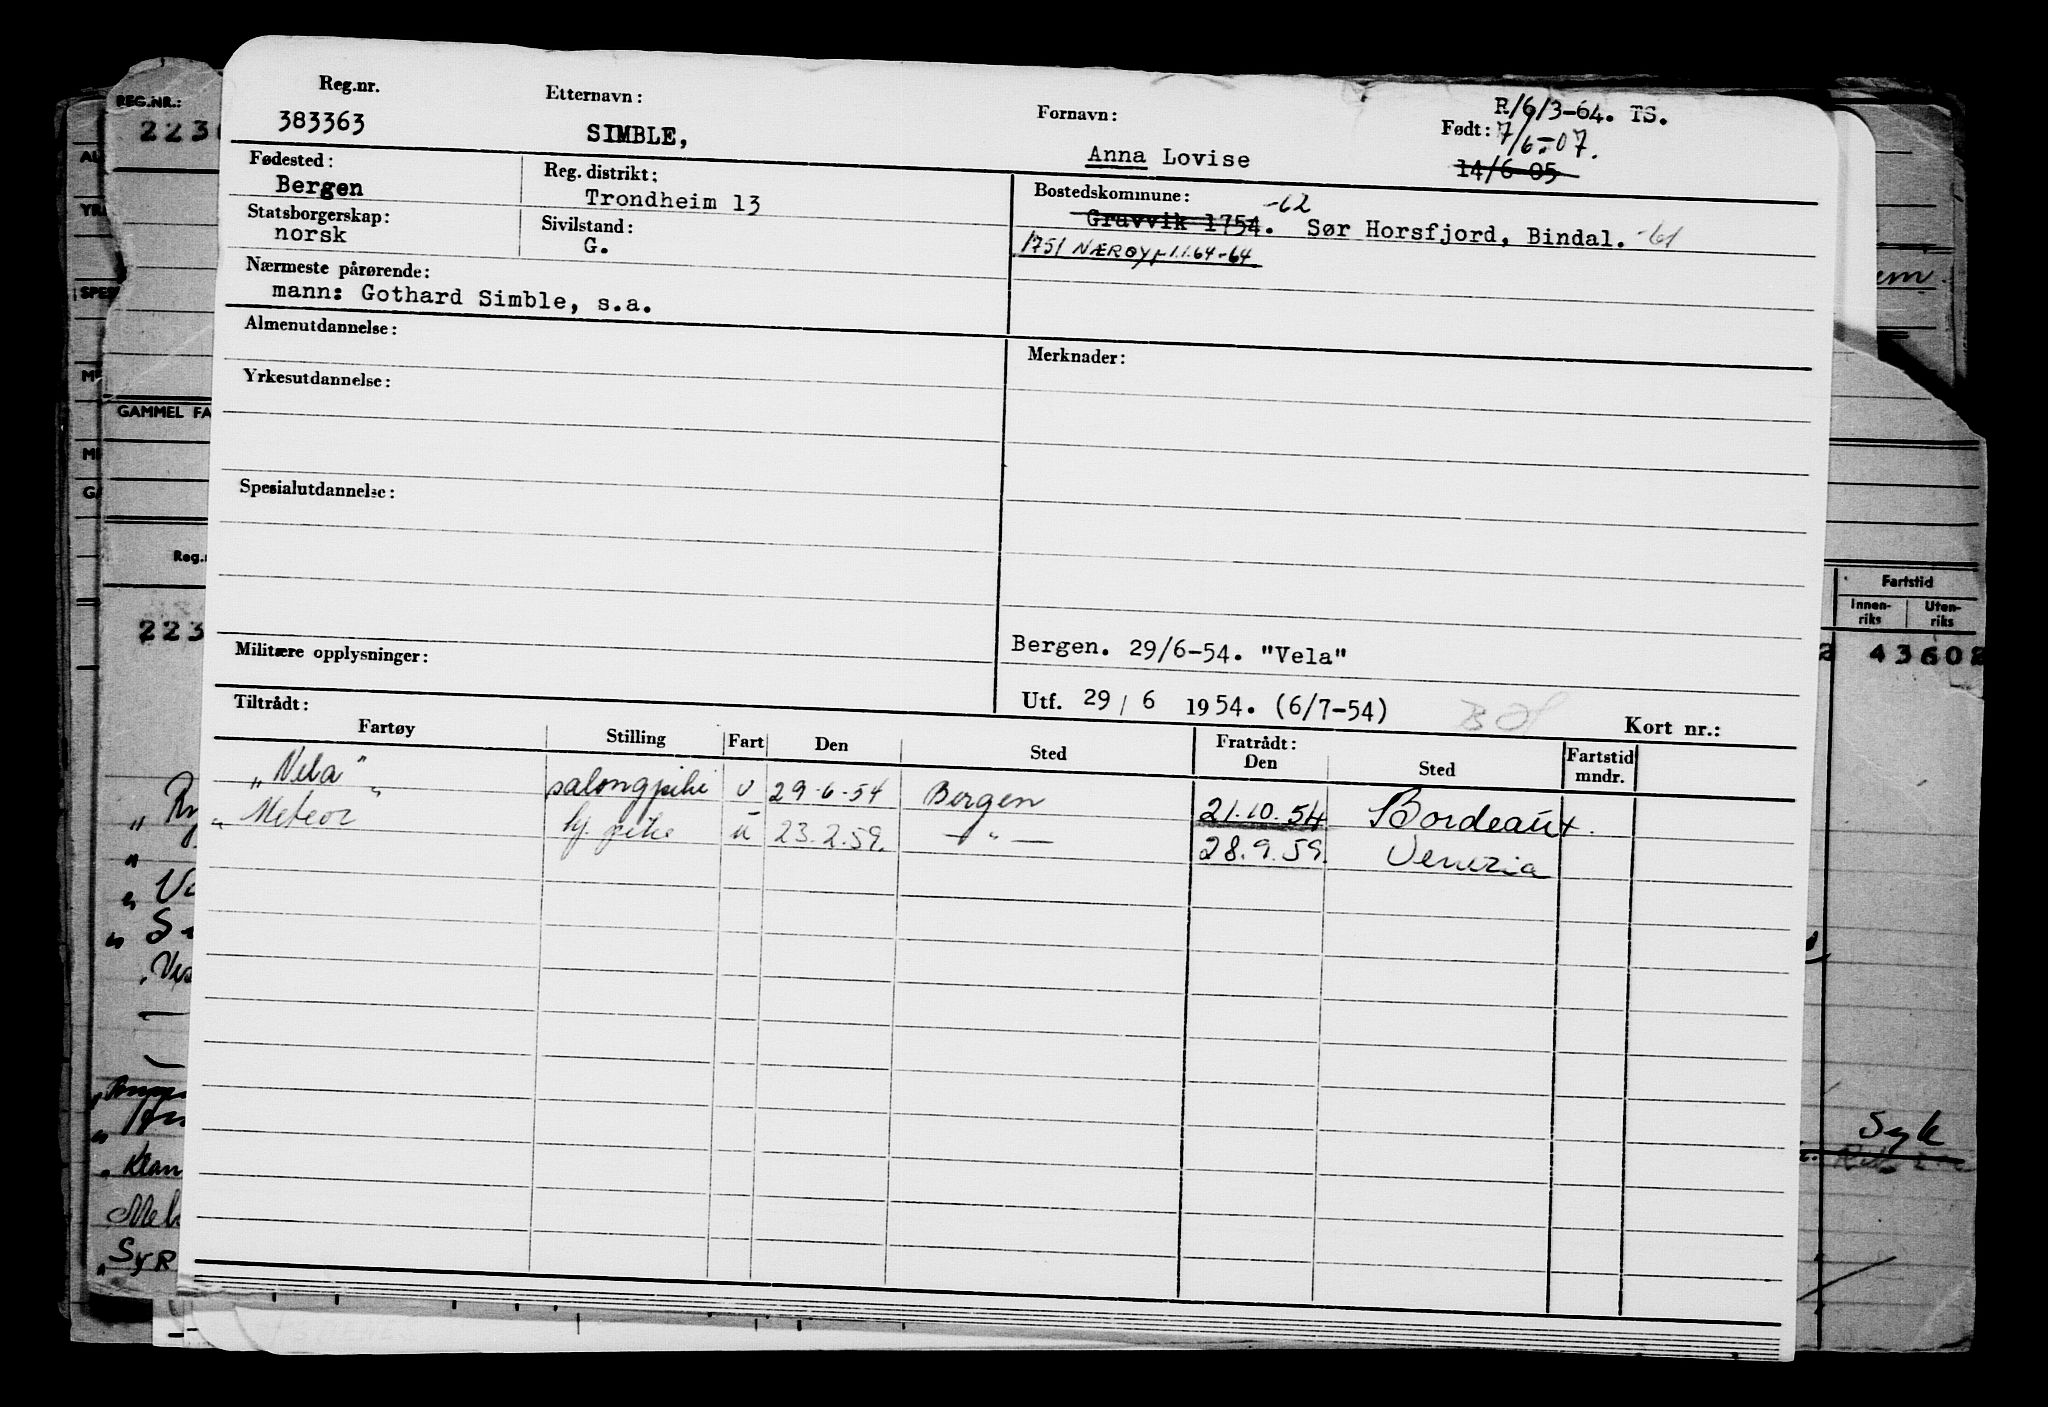 Reg.nr. Etternavn: Fornavn: R/6/3-64. TS.
383363 SIMBLE, Anna Lovise Født: 7/6-07.
14/6-05
Fødested: Reg. distrikt: Bostedskommune:
Bergen Trondheim 13 Gravvik 1754. -62 Sør Horsfjord, Bindal. -61
Statsborgerskap: Sivilstand: 1751 NÆRØY 1.1.64-64
norsk G.
Nærmeste pårørende:
mann: Gothard Simble, s.a.
Almenutdannelse: Merknader:
Yrkesutdannelse:
Spesialutdannelse:
Militære opplysninger: Bergen. 29/6-54. "Vela"
Utf. 29/6 1954. (6/7-54) Kort nr.:
Tiltrådt: Fratrådt:
Fartøy Stilling Fart Den Sted Den Sted Fartstid mndr.
"Vela" salongpike u 29-6-54 Bergen 21.10.54 Bordeaux.
"Meteor" lg. pike u 23.2.59. — " — 28.9.59. Venezia
REG.NR.:
223
YR
SPE
GAMMEL FA
Reg.n
223
Fartstid
Innen-riks Uten-riks
2 43602
Syk
Klan
SYR